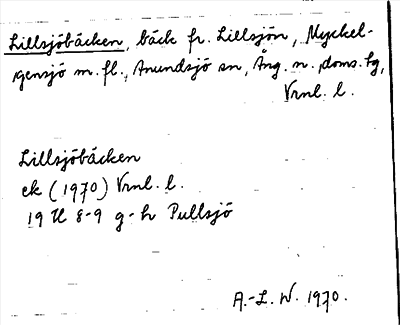 Lillsjöbäcken, bäck fr. Lillsjön, Myckel-
gensjö m.fl., Anundsjö sn, Ång. n. doms. tg,
Vrnl. l.
Lillsjöbäcken
ek (1970) Vrnl. l.
19 H 8-9 g-h Pullsjö
A.-L. W. 1970.